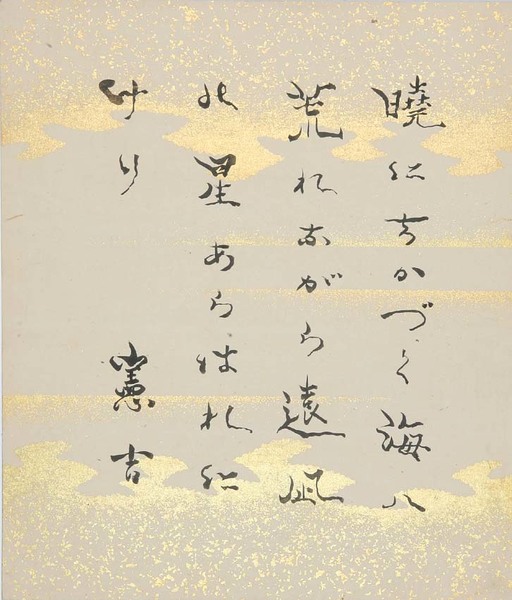 曉にちかづく海ハ
荒れながら遠凪
の星あらはれに
けり 憲吉